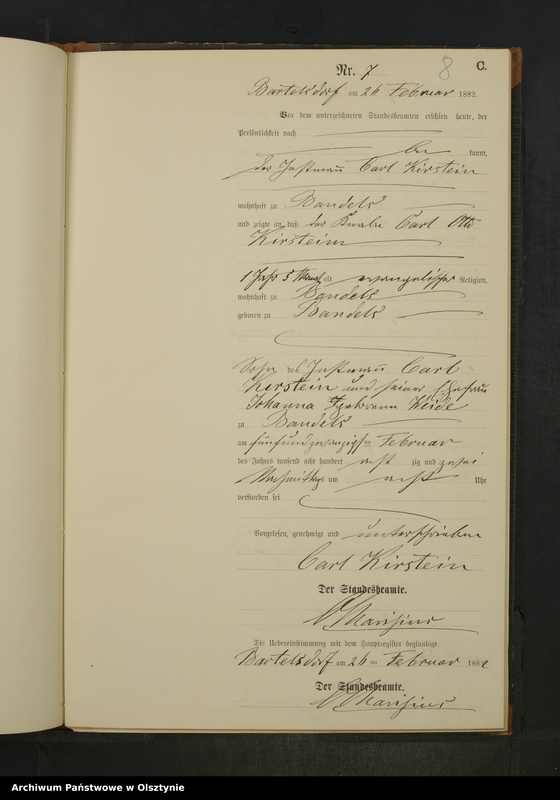 Nr. 7 8 C.
Bartelsdorf am 26 Februar 1882.
Vor dem unterzeichneten Standesbeamten erschien heute, der
Persönlichkeit nach
be kannt,
der Instmann Carl Kirstein
wohnhaft zu Bandels
und zeigte an, daß der Knabe Carl Otto
Kirstein
1 Jahr 5 Monat alt evangelischer Religion,
wohnhaft zu Bandels
geboren zu Bandels
Sohn des Instmann Carl
Kirstein und seiner Ehefrau
Johanna geborene Weide
zu Bandels
am fünfundzwanzigsten Februar
des Jahres tausend acht hundert acht zig und zwei
Nachmittags um acht Uhr
verstorben sei
Vorgelesen, genehmigt und unterschrieben
Carl Kirstein
Der Standesbeamte.
Die Uebereinstimmung mit dem Hauptregister beglaubigt.
Bartelsdorf am 26 ten Februar 1882
Der Standesbeamte.
Archiwum Państwowe w Olsztynie